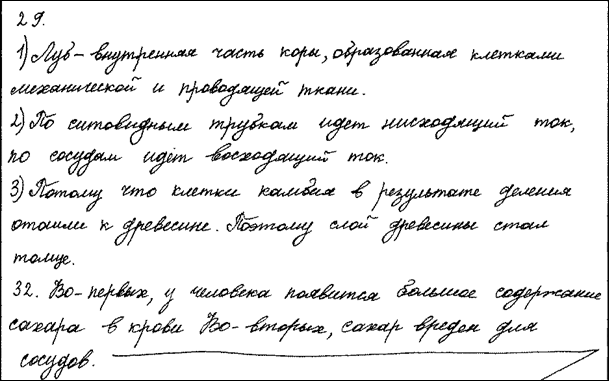 29.
1) Луб – внутренняя часть коры, образованная клетками
механической и проводящей ткани.
2) По ситовидным трубкам идет нисходящий ток,
по сосудам идёт восходящий ток.
3) Потому что клетки камбия в результате деления
отошли к древесине. Поэтому слой древесины стал
толще.
32. Во-первых, у человека появится большое содержание
сахара в крови Во-вторых, сахар вреден для
сосудов.